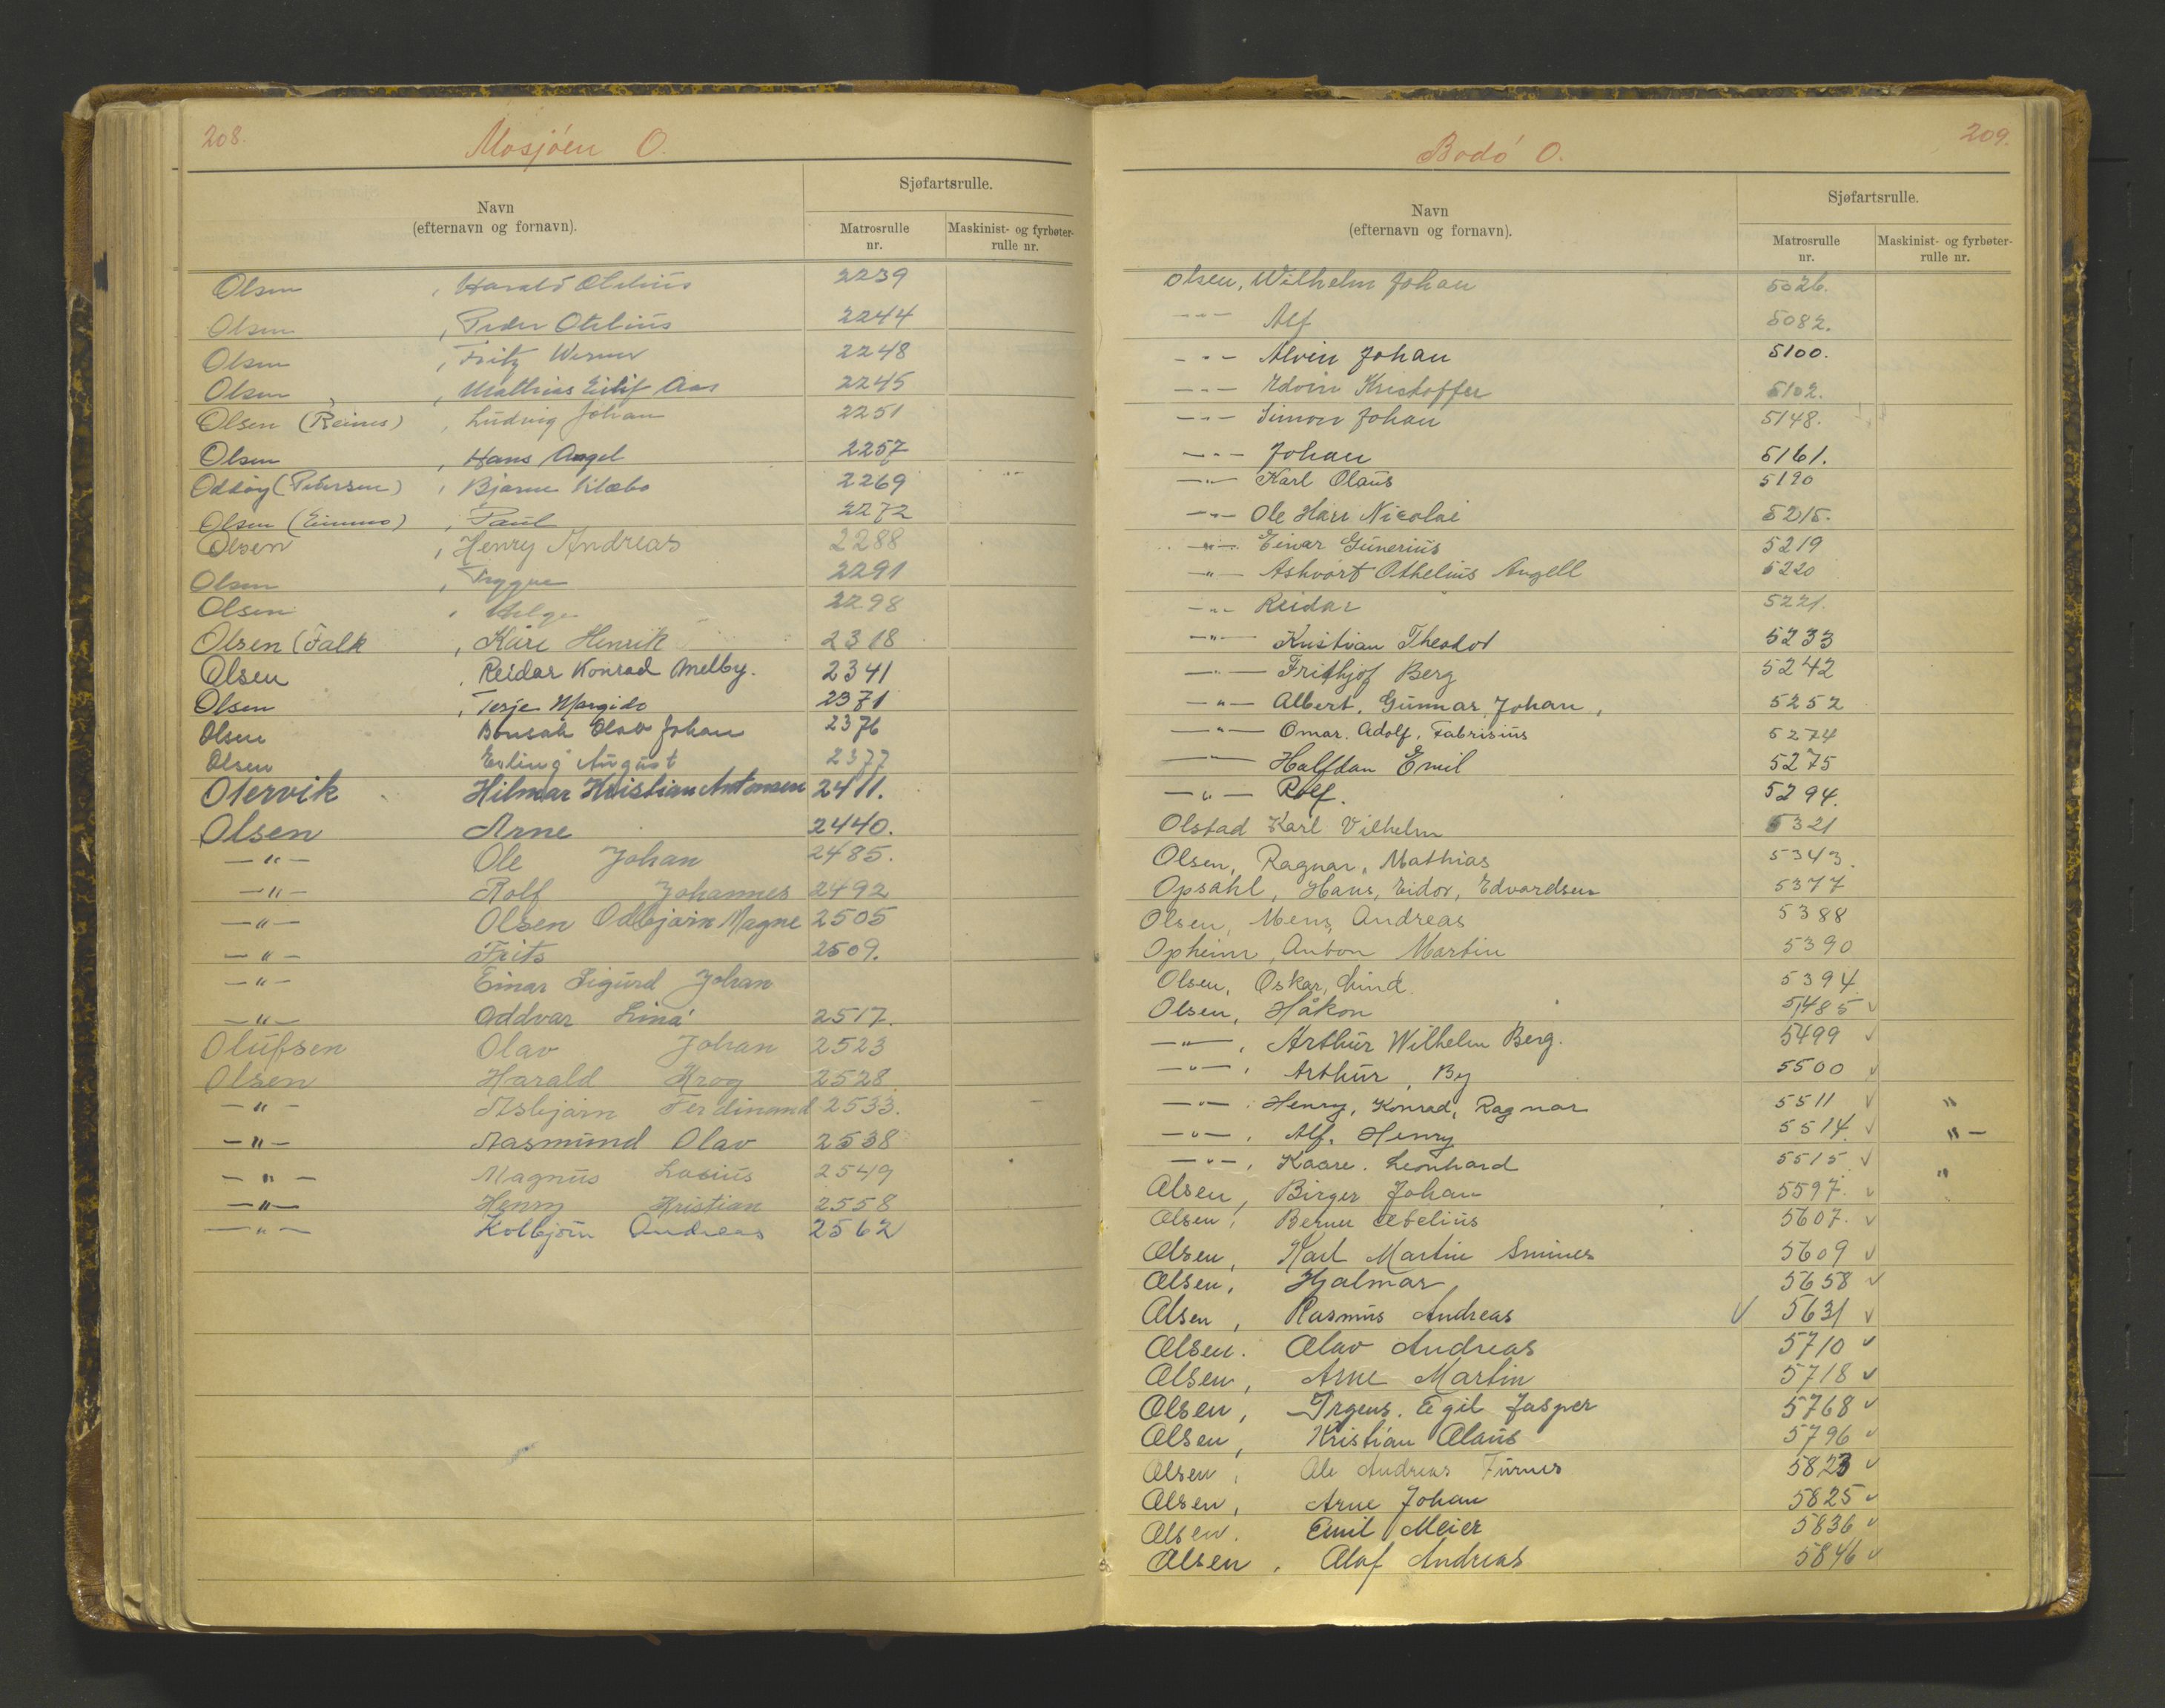 208.
Mosjöen O.
Navn
(efternavn og fornavn).
Sjøfartsrulle.
Matrosrulle
nr.
Maskinist- og fyrbøter-
rulle nr.
Olsen , Harald Otelius 2239
Olsen , Peder Otelius 2244
Olsen , Fritz Werner 2248
Olsen , Mathias Eilif Aas 2245
Olsen (Reines) , Ludvig Johan 2251
Olsen , Hans Angel 2257
Oddöy (Petersen) , Bjarne 2269
Olsen , Paul 2272
Olsen , Henry Andreas 2288
Olsen , Trygve 2291
Olsen , Helge 2298
Olsen (Falk , Kåre Henrik 2318
Olsen , Reidar Konrad Melby. 2341
Olsen , Terje Margido 2371
Olsen Bonsak Olav Johan 2376
Olsen Erling August 2377
Otervik Hilmar Kristian Antonsen 2411.
Olsen Arne 2440.
—"— Ole Johan 2485.
—"— Rolf Johannes 2492
—"— Olsen Odbjørn Magne 2505
—"— Frits 2509.
—"— Einar Sigurd Johan
—"— Oddvar Liná 2517.
Olufsen Olav Johan 2523
Olsen Harald Krog 2528.
—"— Asbjørn Ferdinand 2533.
—"— Aasmund Olav 2538
—"— Magnus 2549
—"— Henry Kristian 2558
—"— Kolbjörn Andreas 2562
209.
Bodö O.
Navn
(efternavn og fornavn).
Sjøfartsrulle.
Matrosrulle
nr.
Maskinist- og fyrbøter-
rulle nr.
Olsen, Wilhelm Johan 5026.
—"— Alf 5082.
—"— Alvin Johan 5100.
—"— Edvin Kristoffer 5102.
—"— Simon Johan 5148.
—"— Johan 5161.
—"— Karl Olaus 5190
—"— Ole Hans Nicolai 5215.
—"— Einar Gunerius 5219
—"— Ashvart Othelius Angell 5220
—"— Reidar 5221.
—"— Kristian Theodor 5233
—"— Frithjof Berg 5242
—"— Albert, Gunnar, Johan, 5252
—"— Omar. Adolf, Fabrisius 5274
—"— Halfdan Emil 5275
—"— Rolf. 5294.
Olstad Karl Vilhelm 5321
Olsen, Ragnar, Mathias 5343.
Opsahl, Hans, Eidor, Edvardsen 5377
Olsen, Mens, Andreas 5388
Opheim, Anton Martin 5390
Olsen, Oskar, Lind. 5394
Olsen, Håkon 5485 ✓
—"—, Arthur Wilhelm Berg. 5499 ✓
—"—, Arthur, By 5500 ✓
—"—, Henry, Konrad, Ragnar 5511 ✓ "
—"—, Alf. Henry 5514. ✓ " —
—"—, Kaare. Leonhard 5515 ✓ "
Olsen, Birger Johan 5597. ✓
Olsen, Berner Otelius 5607. ✓
Olsen, Karl Martin 5609 ✓
Olsen, Hjalmar, 5658 ✓
Olsen, Rasmus Andreas ✓ 5631 ✓
Olsen. Olav Andreas 5710 ✓
Olsen, Arne Martin 5718 ✓
Olsen, Irgens. Egil Jasper 5768 ✓
Olsen, Kristian Olaus 5796 ✓
Olsen, Ole Andreas Furnes 5823 ✓
Olsen, Arne Johan 5825 ✓
Olsen. Emil Meier 5836 ✓
Olsen, Olaf Andreas 5846 ✓